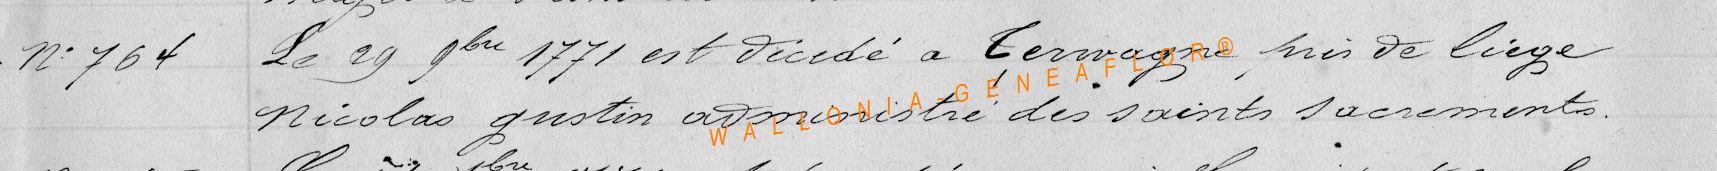 N° 764 Le 29 9bre 1771 est décédé a Terwagne pris de liege
Nicolas gustin administré des saints sacrements.
WALLONIA-GÉNÉAFLOR®